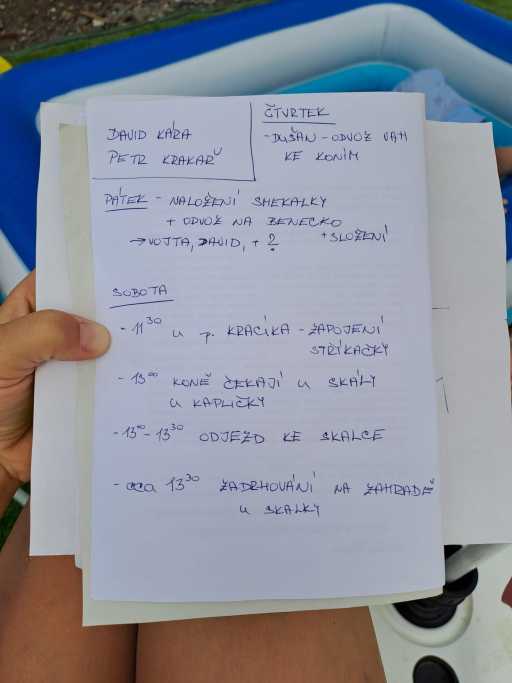 DAVID KÁRA
PETR KRAKAŘ
ČTVRTEK
- DUŠAN - ODVOZ VAH
KE KONÍM
PÁTEK - NALOŽENÍ SMEKALKY
+ ODVOZ NA BENECKO
→ VOJTA, DAVID, + ? + SLOŽENÍ
SOBOTA
- 11³⁰ u p. KRACÍKA - ZAPOJENÍ
STŘÍKAČKY
- 13⁰⁰ KONĚ ČEKAJÍ U SKÁLY
U KAPLIČKY
- 13⁰⁰ - 13³⁰ ODJEZD KE SKALCE
- cca 13³⁰ ZADRHOVÁNÍ NA ZAHRADĚ
U SKALKY